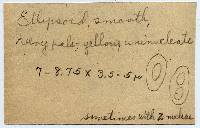 Ellipsoid, smooth,
very pale, yellow, uninucleate
7-8.75 x 3.5-5 µ
sometimes with 2 nuclei